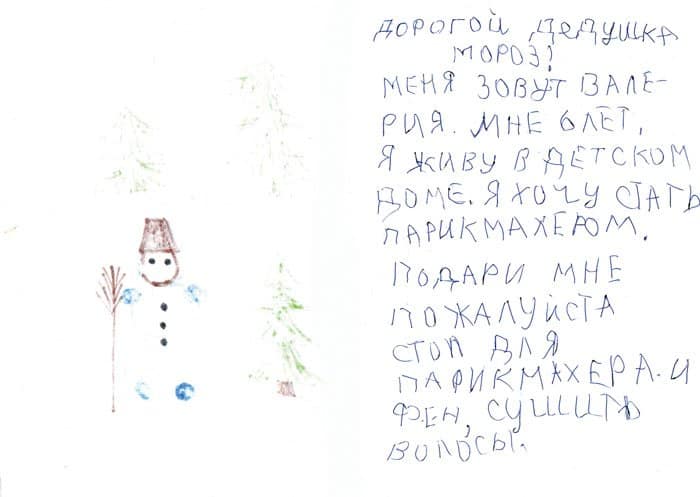 ДОРОГОЙ ДЕДУШКА
МОРОЗ!
МЕНЯ ЗОВУТ ВАЛЕ-
РИЯ. МНЕ 6 ЛЕТ,
Я ЖИВУ В ДЕТСКОМ
ДОМЕ. Я ХОЧУ СТАТЬ
ПАРИКМАХЕРОМ.
ПОДАРИ МНЕ
ПОЖАЛУЙСТА
СТОЛ ДЛЯ
ПАРИКМАХЕРА. И
ФЕН, СУШИТЬ
ВОЛОСЫ.